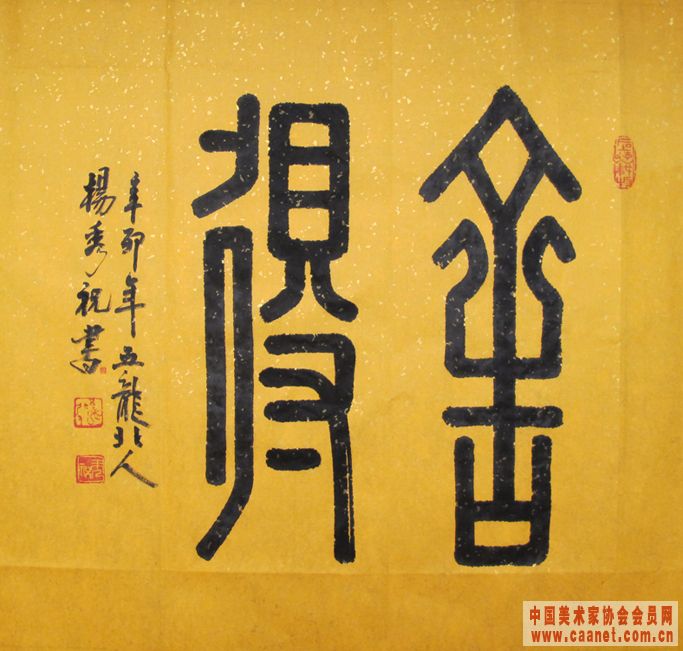 舍得
辛卯年五龍北人
楊秀祝書
中国美术家协会会员网
www.caanet.com.cn